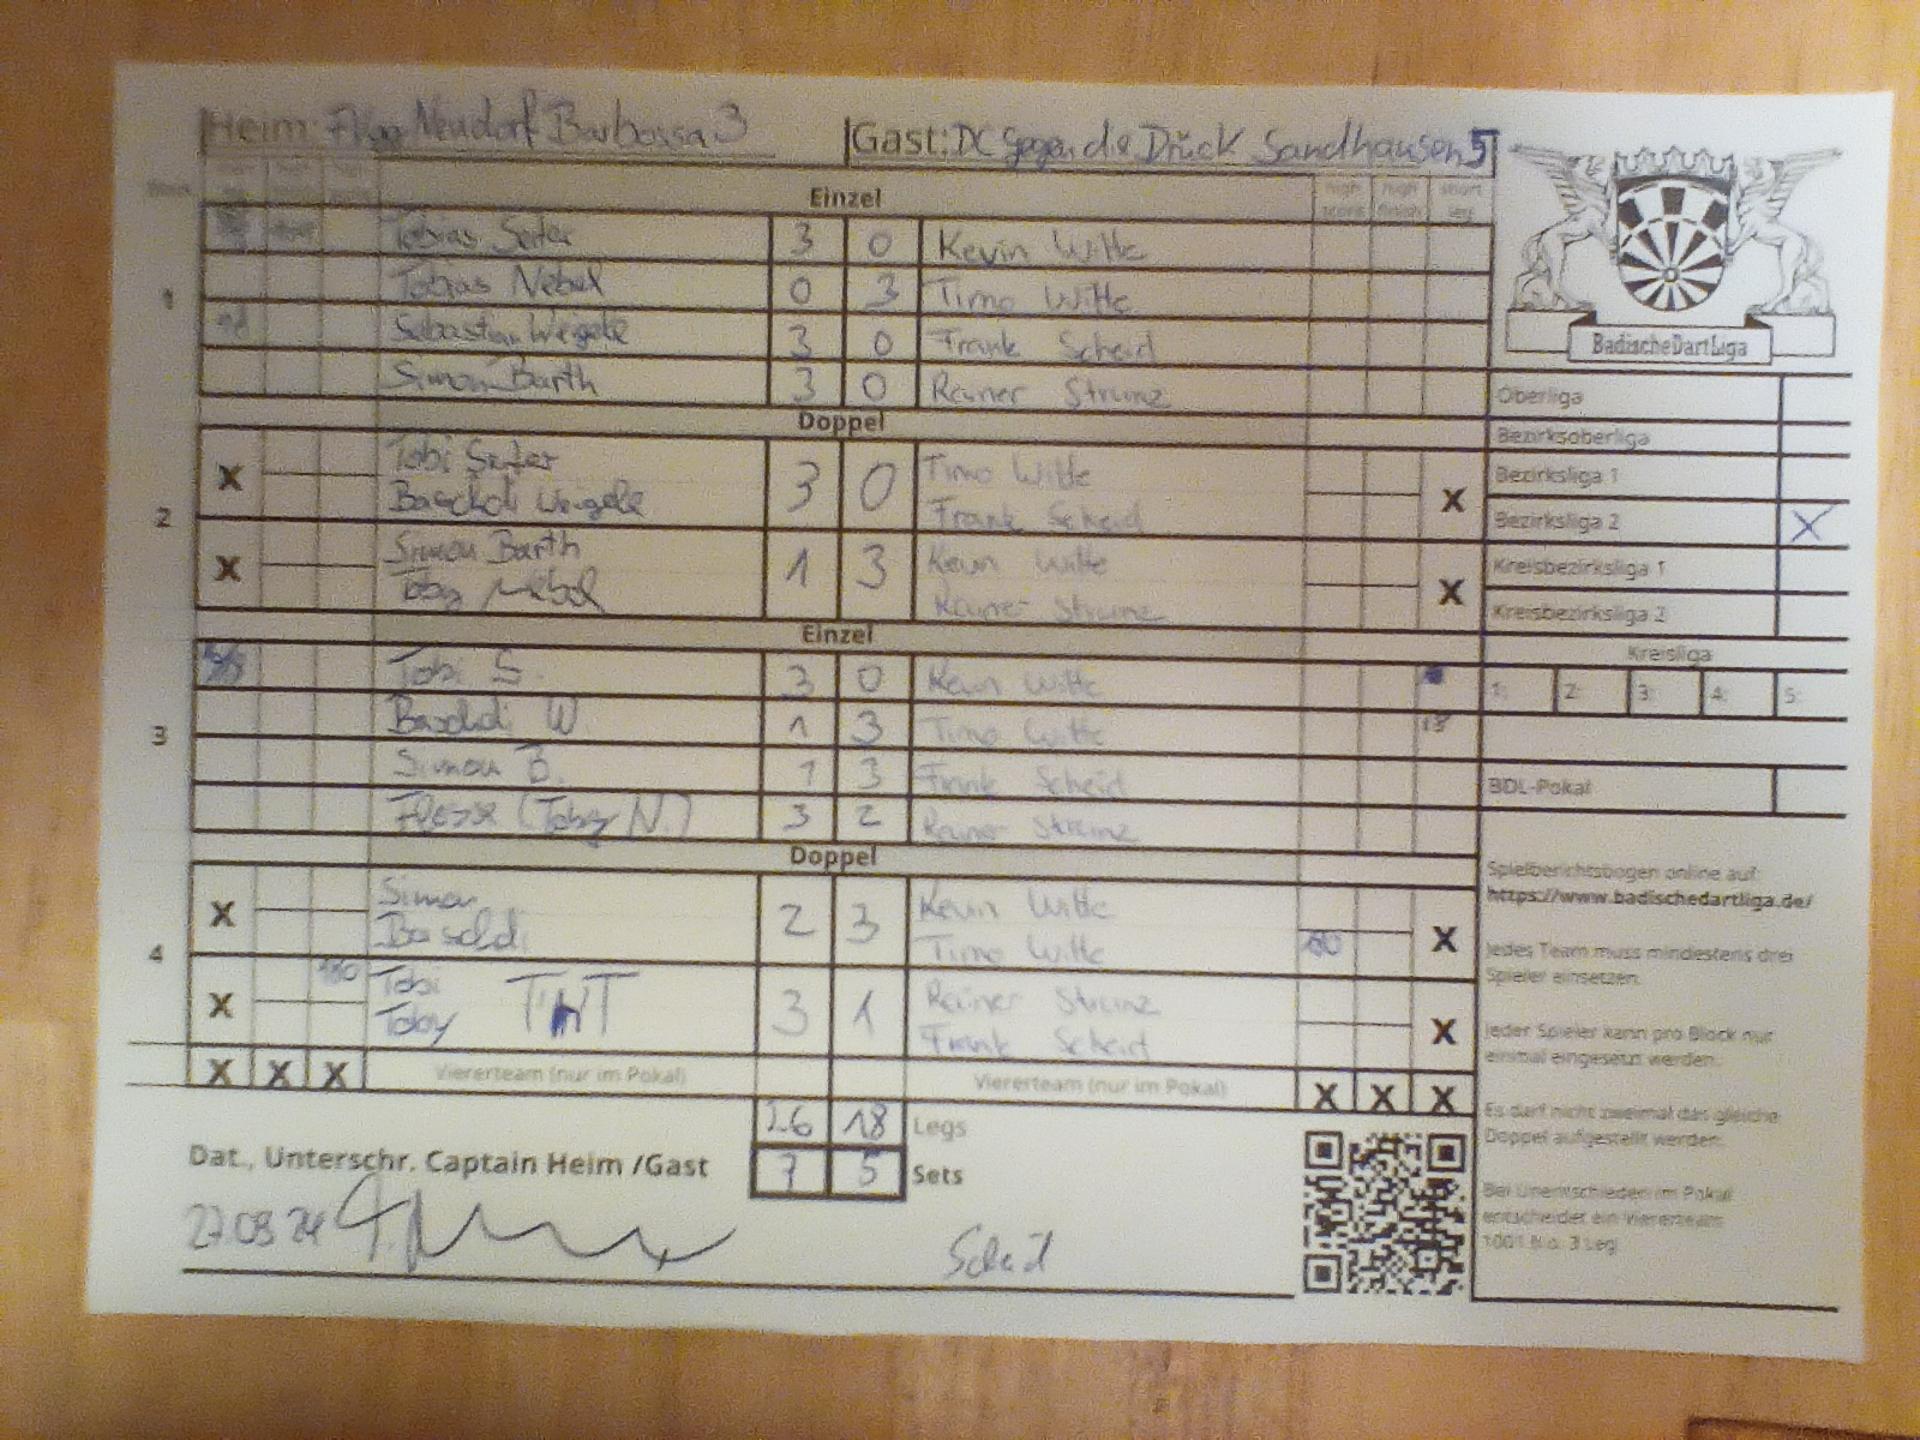 Heim: Neudorf Barbossa 3 Gast: DC gegen die Drück Sandhausen 5
high score high finish short leg
Einzel
1
Tobias Seiter 3 0 Kevin Witte
Tobias Nebel 0 3 Timo Witte
Sebastian Weigele 3 0 Frank Scheid
Simon Barth 3 0 Reiner Strunz
Doppel
2
X Tobi Seiter 3 0 Timo Witte X
Baschdi Weigele Frank Scheid
X Simon Barth 1 3 Kevin Witte X
Toby Nebel Reiner Strunz
Einzel
3
Tobi S. 3 0 Kevin Witte
Baschdi W 1 3 Timo Witte
Simon B. 1 3 Frank Scheid
(Toby N.) 3 2 Reiner Strunz
Doppel
4
X Simon 2 3 Kevin Witte X
Baschdi Timo Witte
X Tobi 3 1 Reiner Strunz X
Toby Frank Scheid
X X X Viererteam (nur im Pokal) Viererteam (nur im Pokal) X X X
26 18 Legs
Dat., Unterschr. Captain Heim /Gast 7 5 Sets
27.09.24 Scheid
BadischeDartLiga
Oberliga
Bezirksoberliga
Bezirksliga 1
Bezirksliga 2 X
Kreisbezirksliga 1
Kreisbezirksliga 2
Kreisliga
1: 2: 3: 4: 5:
BDL-Pokal
Spielberichtsbogen online auf:
https://www.badischedartliga.de/
Jedes Team muss mindestens drei
Spieler einsetzen.
Jeder Spieler kann pro Block nur
einmal eingesetzt werden.
Es darf nicht zweimal das gleiche
Doppel aufgestellt werden.
Bei Unentschieden im Pokal
entscheidet ein Viererteam
1001 B.o. 3 Leg